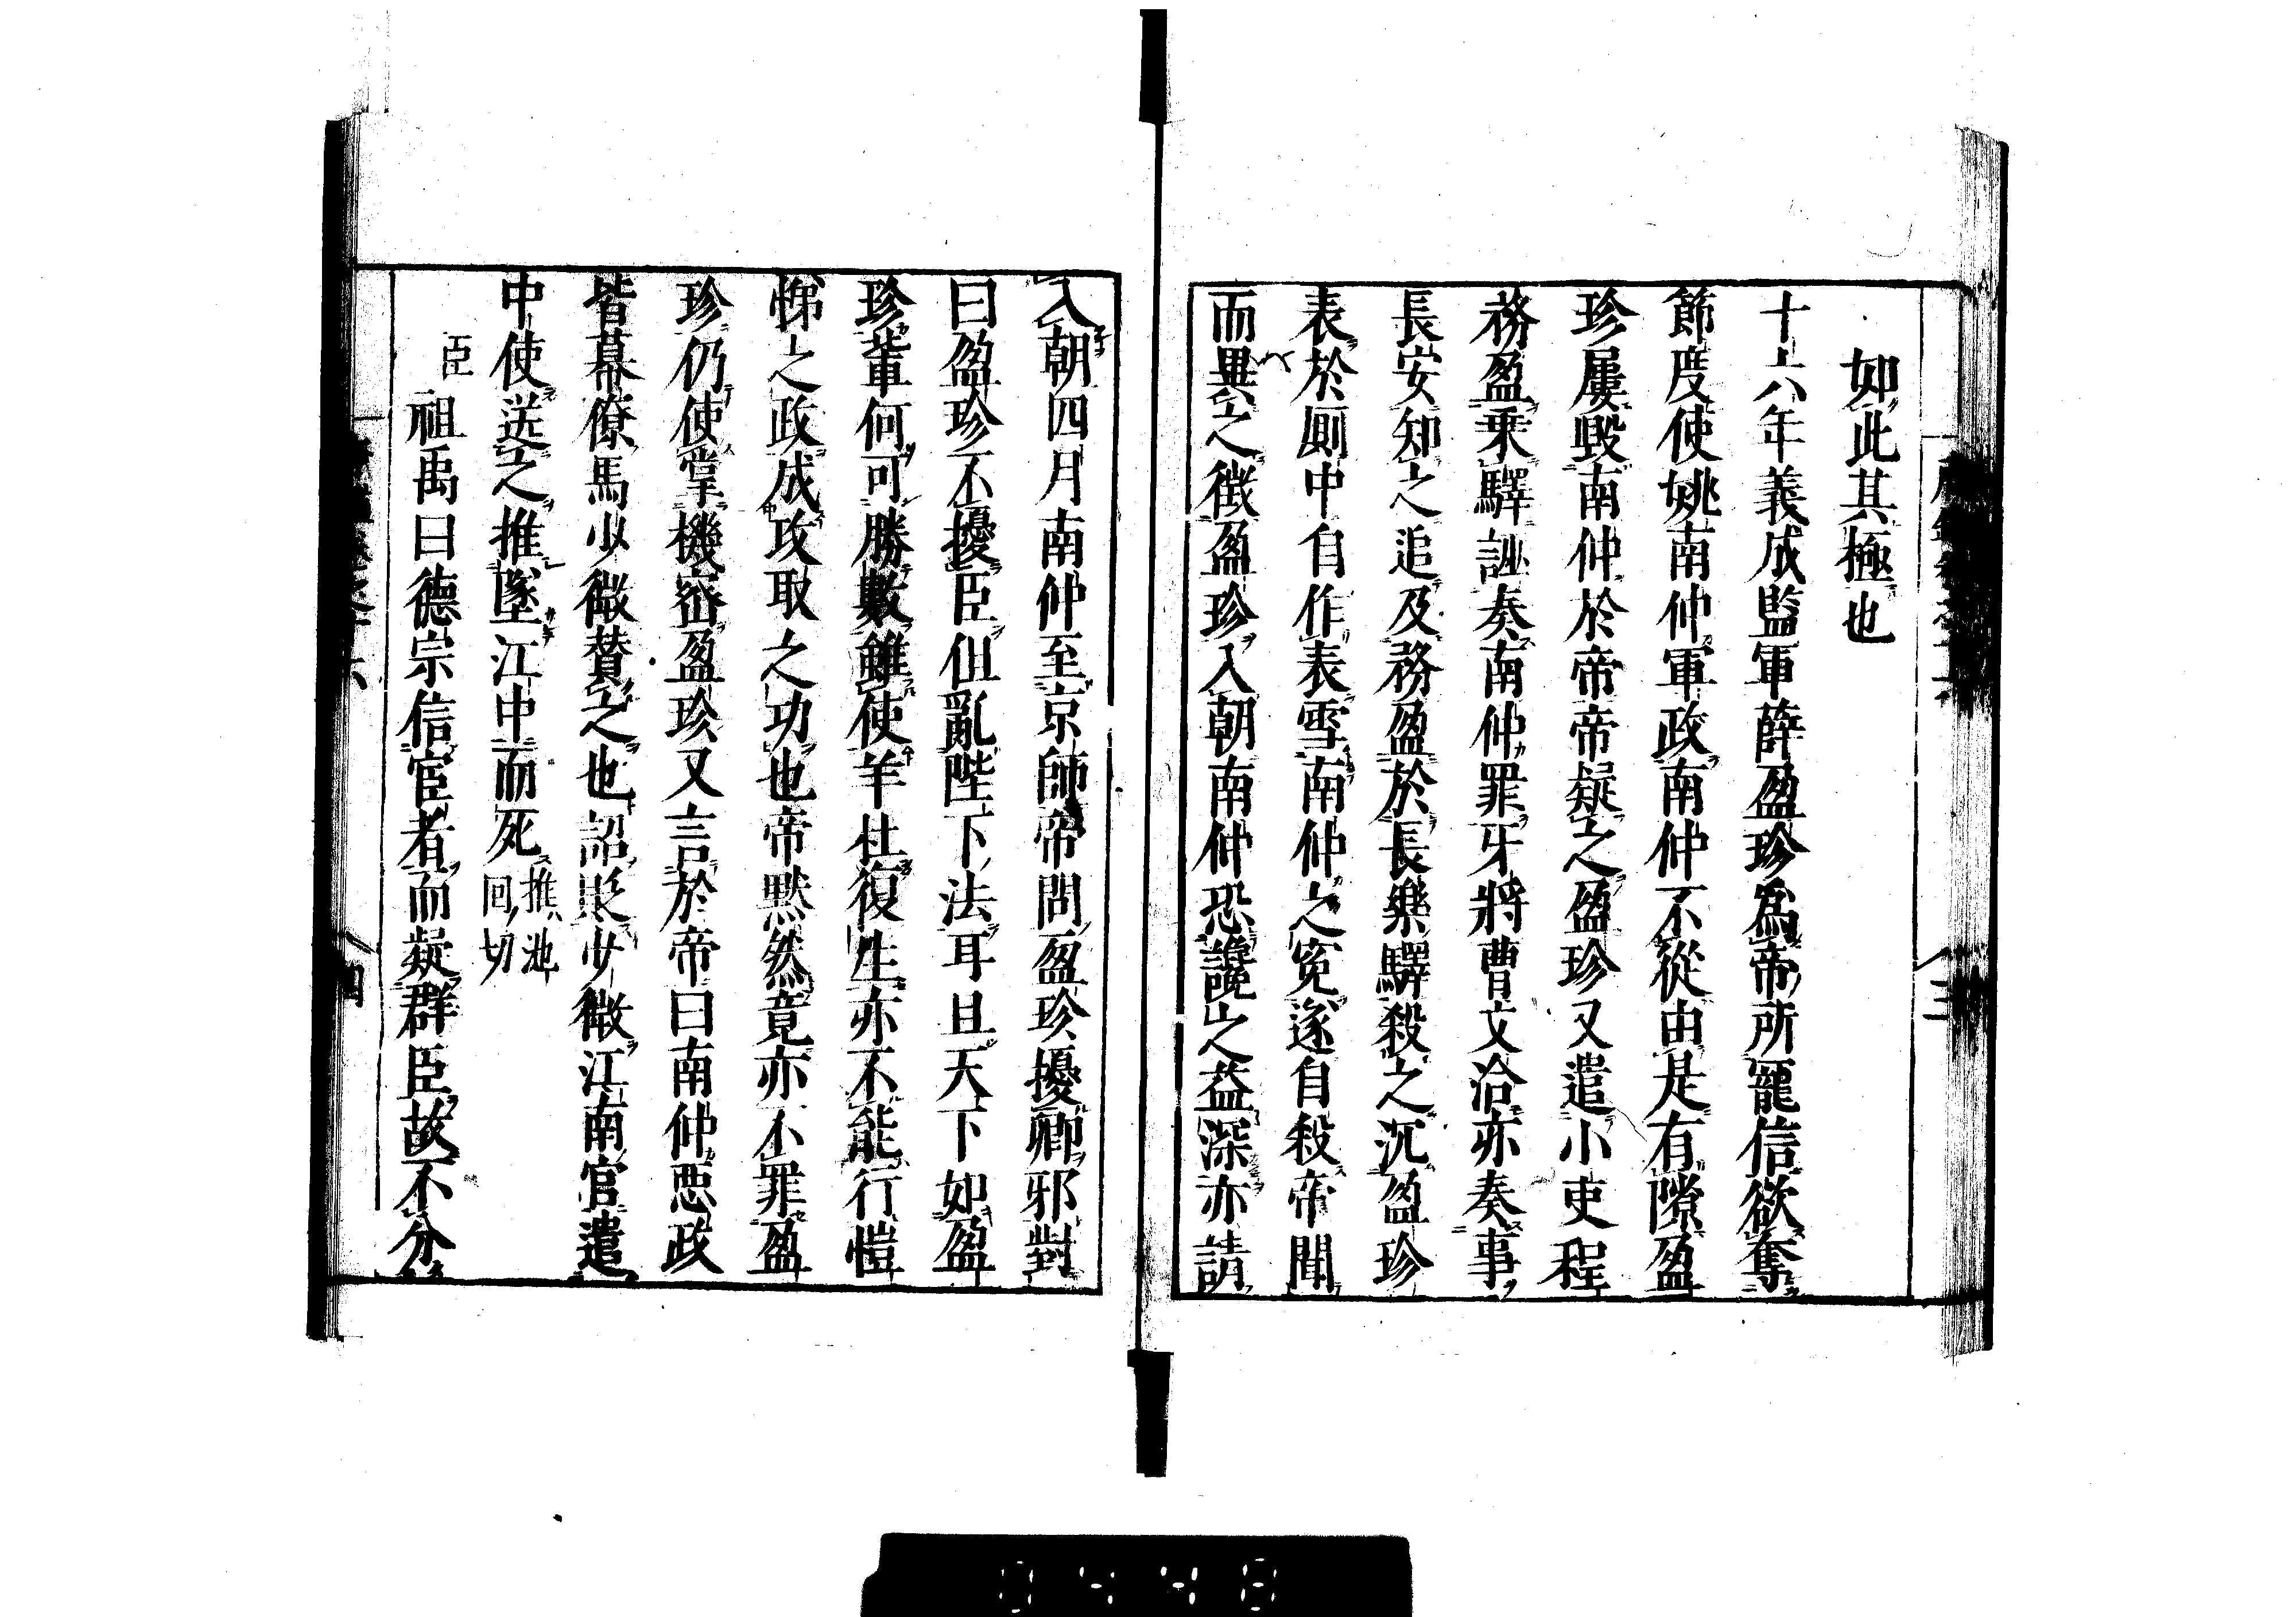 如此其極也
十六年義成監軍薛盈珍爲帝所寵信欲奪
節度使姚南仲軍政南仲不從由是有隙盈
珍屢毀南仲於帝帝疑之盈珍又遣小吏程
務盈乗驛誣奏南仲罪牙將曹文洽亦奏事
長安知之追及務盈於長樂驛殺之沉盈珍
表於厠中自作表雪南仲之寃遂自殺帝聞
而異之徴盈珍入朝南仲恐讒之益深亦請
入朝四月南仲至京師帝問盈珍擾卿邪對
曰盈珍不擾臣但亂陛下法耳且天下如盈
珍輩何可勝數雖使羊杜復生亦不能行愷
悌之政成攻取之功也帝黙然竟亦不罪盈
珍仍使掌機密盈珍又言於帝曰南仲悪政
皆幕僚馬少微賛之也詔貶少微江南官遣
中使送之推墜江中而死推池回切
臣祖禹曰德宗信宦者而疑群臣故不分